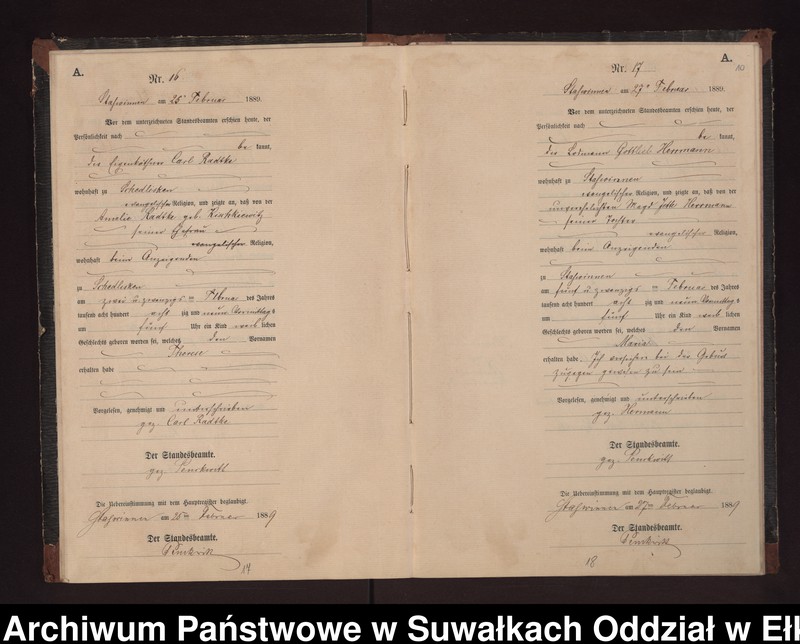 A.
Nr. 16
am 25 Februar 1889.
Vor dem unterzeichneten Standesbeamten erschien heute, der
Persönlichkeit nach
be kannt,
Carl Radtke
wohnhaft zu Schedlisken
evangelischer Religion, und zeigte an, daß von der
Amalie Radtke geb.
seiner Ehefrau
evangelischer Religion,
wohnhaft beim Anzeigenden
zu Schedlisken
am zwei u. zwanzigs ten Februar des Jahres
tausend acht hundert acht zig und neun Vormittags
um fünf Uhr ein Kind weib lichen
Geschlechts geboren worden sei, welches den Vornamen
Therese
erhalten habe
Vorgelesen, genehmigt und unterschrieben
gez. Carl Radtke
Der Standesbeamte.
gez.
Die Uebereinstimmung mit dem Hauptregister beglaubigt.
am 25ten Februar 1889
Der Standesbeamte.
17
A.
Nr. 17
am 27 Februar 1889.
Vor dem unterzeichneten Standesbeamten erschien heute, der
Persönlichkeit nach
be kannt,
der Gottlieb Herrmann
wohnhaft zu
evangelischer Religion, und zeigte an, daß von der
unverehelichten Magd Herrmann
seiner Tochter
evangelischer Religion,
wohnhaft beim Anzeigenden
zu
am fünf u. zwanzigs ten Februar des Jahres
tausend acht hundert acht zig und neun
um fünf Uhr ein Kind weib lichen
Geschlechts geboren worden sei, welches den Vornamen
Maria
erhalten habe. Ich versichere bei der Geburt
zugegen gewesen zu sein
Vorgelesen, genehmigt und unterschrieben
gez. Herrmann
Der Standesbeamte.
gez.
Die Uebereinstimmung mit dem Hauptregister beglaubigt.
am 27ten Februar 1889
Der Standesbeamte.
18
Archiwum Państwowe w Suwałkach Oddział w Eł